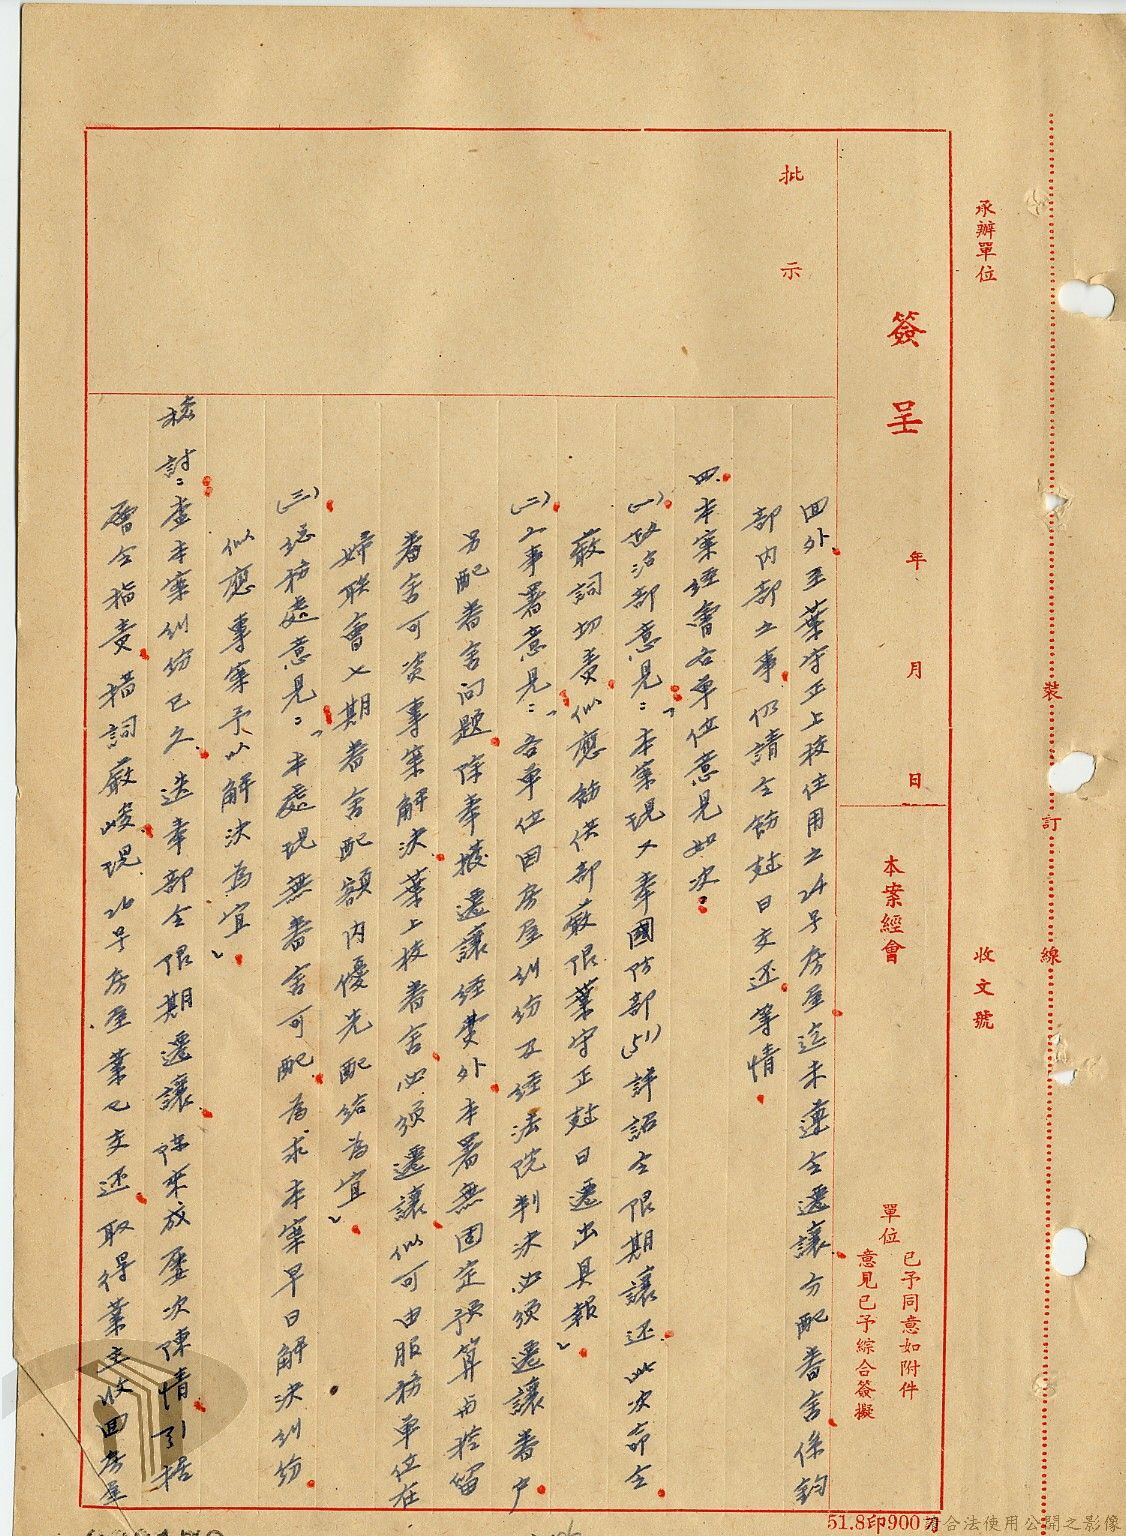 承辦單位
收文號
裝
訂
線
簽呈
年
月
日
本案經會
單位
已予同意如附件
意見已予綜合簽擬
批示
回外至葉守正上校住用之24号房屋迄未遵令遷讓另配眷舍係鈞
部内部之事仍請令飭尅日交还等情
四、本案經會各單位意見如次：
(一)政治部意見：「本案現又奉國防部(51)評詔令限期讓还此次命令
嚴詞切責似應飭供部嚴限葉守正尅日遷出具報」
(二)工事署意見：「各單位因房屋糾紛及經法院判決必須遷讓眷户
另配眷舍問題除奉撥遷讓經費外本署無固定預算與控留
眷舍可資專案解決葉上校眷舍必須遷讓似可由服務單位在
婦联會七期眷舍配額内優先配给為宜」
(三)總務處意見：「本處現無眷舍可配為求本案早日解決糾紛
似應專案予以解決為宜」
檢討：查本案糾紛已久迭奉部令限期遷讓陈來放屢次陳情引括
層令指責措詞嚴峻現26号房屋業已交还取得業主收回房屋
51.8印900才
合法使用公開之影像